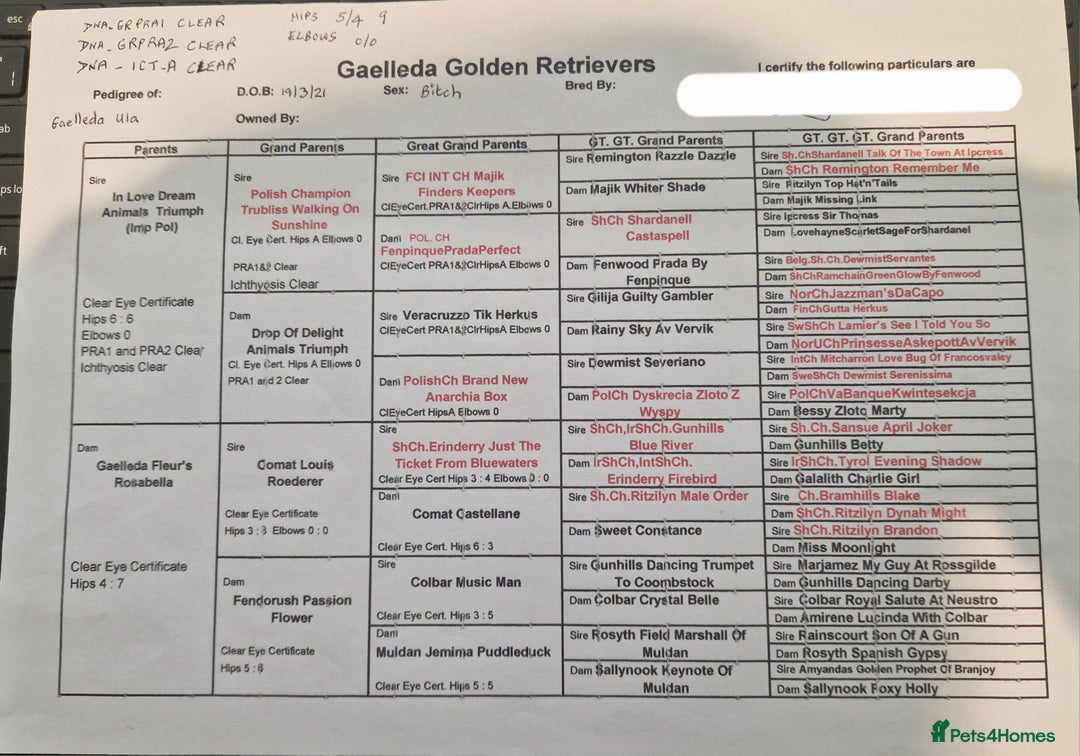 esc
DNA-GRPRA1 CLEAR
HIPS 5/4 9
DNA-GRPRA2 CLEAR
ELBOWS 0/0
DNA - ICT-A CLEAR
Gaelleda Golden Retrievers
I certify the following particulars are
Pedigree of:
D.O.B: 19/3/21
Sex: Bitch
Bred By:
Gaelleda Ula
Owned By:
Parents
Grand Parents
Great Grand Parents
GT. GT. Grand Parents
GT. GT. GT. Grand Parents
Sire
In Love Dream
Animals Triumph
(Imp Pol)
Clear Eye Certificate
Hips 6 : 6
Elbows 0
PRA1 and PRA2 Clear
Ichthyosis Clear
Dam
Gaelleda Fleur's
Rosabella
Clear Eye Certificate
Hips 4 : 7
Sire
Polish Champion
Trubliss Walking On
Sunshine
Cl. Eye Cert. Hips A Elbows 0
PRA1&2 Clear
Ichthyosis Clear
Dam
Drop Of Delight
Animals Triumph
Cl. Eye Cert. Hips A Elbows 0
PRA1 and 2 Clear
Sire
Comat Louis
Roederer
Clear Eye Certificate
Hips 3 : 3 Elbows 0 : 0
Dam
Fendorush Passion
Flower
Clear Eye Certificate
Hips 5 : 6
Sire FCI INT CH Majik
Finders Keepers
ClEyeCert.PRA1&2ClrHips A.Elbows 0
Dam POL. CH
FenpinquePradaPerfect
ClEyeCert PRA1&2ClrHipsA Elbows 0
Sire Veracruzzo Tik Herkus
ClEyeCert PRA1&2ClrHipsA Elbows 0
Dam PolishCh Brand New
Anarchia Box
ClEyeCert HipsA Elbows 0
Sire
ShCh.Erinderry Just The
Ticket From Bluewaters
Clear Eye Cert Hips 3 : 4 Elbows 0 : 0
Dam
Comat Castellane
Clear Eye Cert. Hips 6 : 3
Sire
Colbar Music Man
Clear Eye Cert. Hips 3 : 5
Dam
Muldan Jemima Puddleduck
Clear Eye Cert. Hips 5 : 5
Sire Remington Razzle Dazzle
Dam Majik Whiter Shade
Sire ShCh Shardanell
Castaspell
Dam Fenwood Prada By
Fenpinque
Sire Gilija Guilty Gambler
Dam Rainy Sky Av Vervik
Sire Dewmist Severiano
Dam PolCh Dyskrecia Zloto Z
Wyspy
Sire ShCh,IrShCh.Gunhills
Blue River
Dam IrShCh,IntShCh.
Erinderry Firebird
Sire Sh.Ch.Ritzilyn Male Order
Dam Sweet Constance
Sire Gunhills Dancing Trumpet
To Coombstock
Dam Colbar Crystal Belle
Sire Rosyth Field Marshall Of
Muldan
Dam Sallynook Keynote Of
Muldan
Sire Sh.ChShardanell Talk Of The Town At Ipcress
Dam ShCh Remington Remember Me
Sire Ritzilyn Top Hat'n'Tails
Dam Majik Missing Link
Sire Ipcress Sir Thomas
Dam LovehayneScarletSageForShardanel
Sire Belg.Sh.Ch.DewmistServantes
Dam ShChRamchainGreenGlowByFenwood
Sire NorChJazzman'sDaCapo
Dam FinChGutta Herkus
Sire SwShCh Lamier's See I Told You So
Dam NorUChPrinsesseAskepottAvVervik
Sire IntCh Mitcharron Love Bug Of Francosvaley
Dam SweShCh Dewmist Serenissima
Sire PolChVaBanqueKwintesekcja
Dam Bessy Zloto Marty
Sire Sh.Ch.Sansue April Joker
Dam Gunhills Betty
Sire IrShCh.Tyrol Evening Shadow
Dam Galalith Charlie Girl
Sire Ch.Bramhills Blake
Dam ShCh.Ritzilyn Dynah Might
Sire ShCh.Ritzilyn Brandon
Dam Miss Moonlight
Sire Marjamez My Guy At Rossgilde
Dam Gunhills Dancing Darby
Sire Colbar Royal Salute At Neustro
Dam Amirene Lucinda With Colbar
Sire Rainscourt Son Of A Gun
Dam Rosyth Spanish Gypsy
Sire Amyandas Golden Prophet Of Branjoy
Dam Sallynook Foxy Holly
Pets4Homes